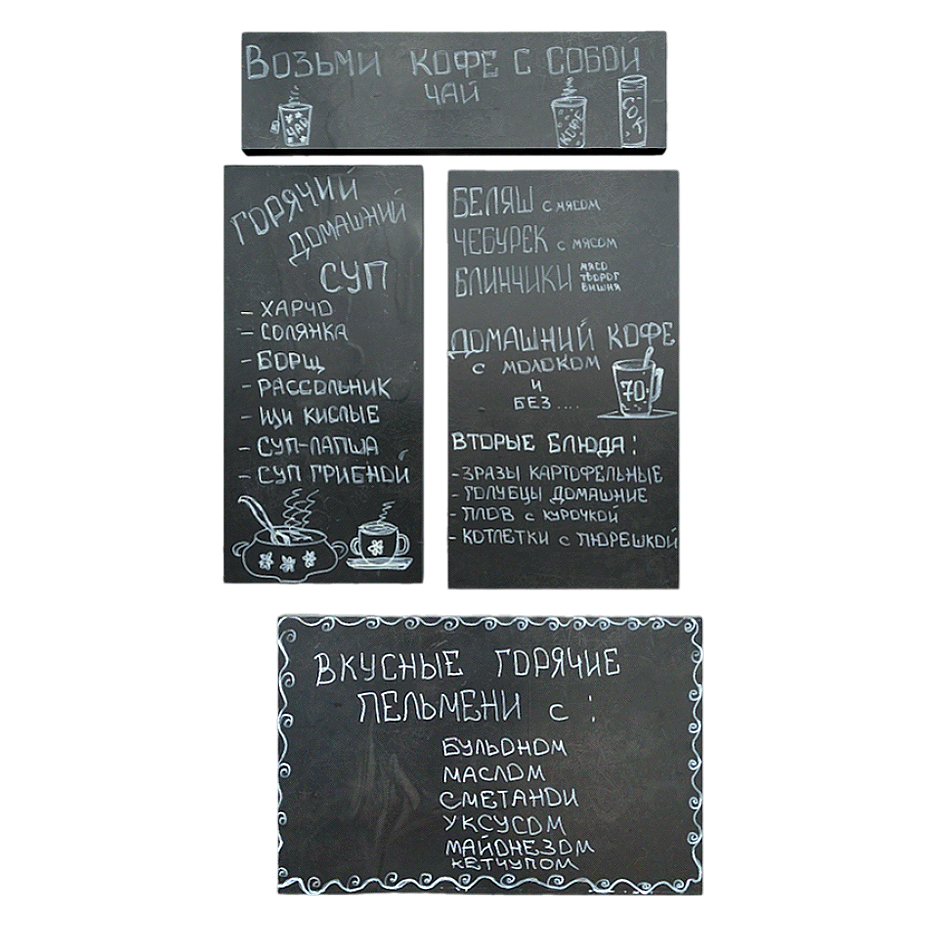 ВОЗЬМИ КОФЕ С СОБОЙ
ЧАЙ
ЧАЙ
КОФЕ
СОК
ГОРЯЧИЙ
ДОМАШНИЙ
СУП
- ХАРЧО
- СОЛЯНКА
- БОРЩ
- РАССОЛЬНИК
- ЩИ КИСЛЫЕ
- СУП-ЛАПША
- СУП ГРИБНОЙ
БЕЛЯШ С МЯСОМ
ЧЕБУРЕК С МЯСОМ
БЛИНЧИКИ МЯСО
ТВОРОГ
ВИШНЯ
ДОМАШНИЙ КОФЕ
С МОЛОКОМ
И
БЕЗ....
70.
ВТОРЫЕ БЛЮДА:
- ЗРАЗЫ КАРТОФЕЛЬНЫЕ
- ГОЛУБЦЫ ДОМАШНИЕ
- ПЛОВ С КУРОЧКОЙ
- КОТЛЕТКИ С ПЮРЕШКОЙ
ВКУСНЫЕ ГОРЯЧИЕ
ПЕЛЬМЕНИ С:
БУЛЬОНОМ
МАСЛОМ
СМЕТАНОЙ
УКСУСОМ
МАЙОНЕЗОМ
КЕТЧУПОМ